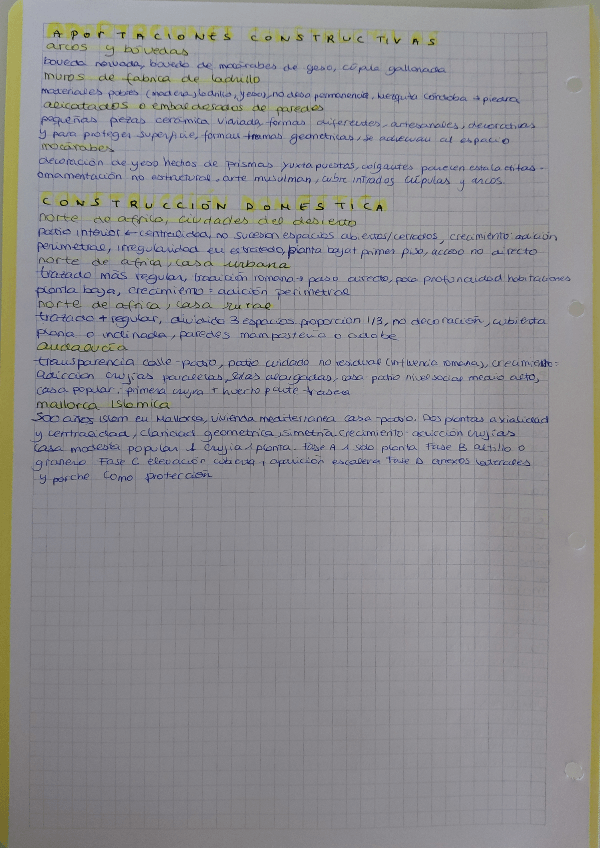 APORTACIONES CONSTRUCTIVAS
arcos y bóvedas
bóveda nervada, bóveda de mocárabes de yeso, cúpula gallonada
muros de fabrica de ladrillo
materiales pobres (madera, ladrillo, yeso), no deseo permanencia, Mezquita Córdoba → piedra
alicatados o embaldosados de paredes
pequeñas piezas cerámica vidriada, formas diferentes, artesanales, decorativas
y para proteger superficie, forman tramas geometricas, se adecuan al espacio
mocárabes
decoración de yeso hechos de prismas yuxtapuestas, colgantes parecen estalactitas
ornamentación no estructural, arte musulman, cubre intrados cúpulas y arcos
CONSTRUCCIÓN DOMESTICA
norte de africa, ciudades del desierto
patio interior ← centralidad, no suceson espacios abiertos/cerrados, crecimiento: adición
perimetral, irregularidad en estratado, planta baja + primer piso, acceso no directo
norte de africa, casa urbana
tratado más regular, tradición romana → paso directo, poca profundidad habitaciones
planta baja, crecimiento: adición perimetral
norte de africa, casa rural
tratado + regular, dividido 3 espacios proporcion 1/3, no decoración, cubierta
plana o inclinada, paredes mamposteria o adobe
andalucía
transparencia calle-patio, patio cuidado no residual (influencia romana), crecimiento:
adicción crujías paralelas, salas alargadas, casa patio nivel social medio alto,
casa popular: primera crujia + huerto parte trasera
mallorca islamica
300 años islam en Mallorca, vivienda mediterranea casa-patio. Dos plantas axialidad
y centralidad, claridad geometrica, simetría, crecimiento: adicción crujías
casa modesta popular 1 crujia 1 planta. Fase A 1 solo planta Fase B altillo o
granero Fase C elevación cubierta, aparición escalera Fase D anexos laterales
y porche como protección